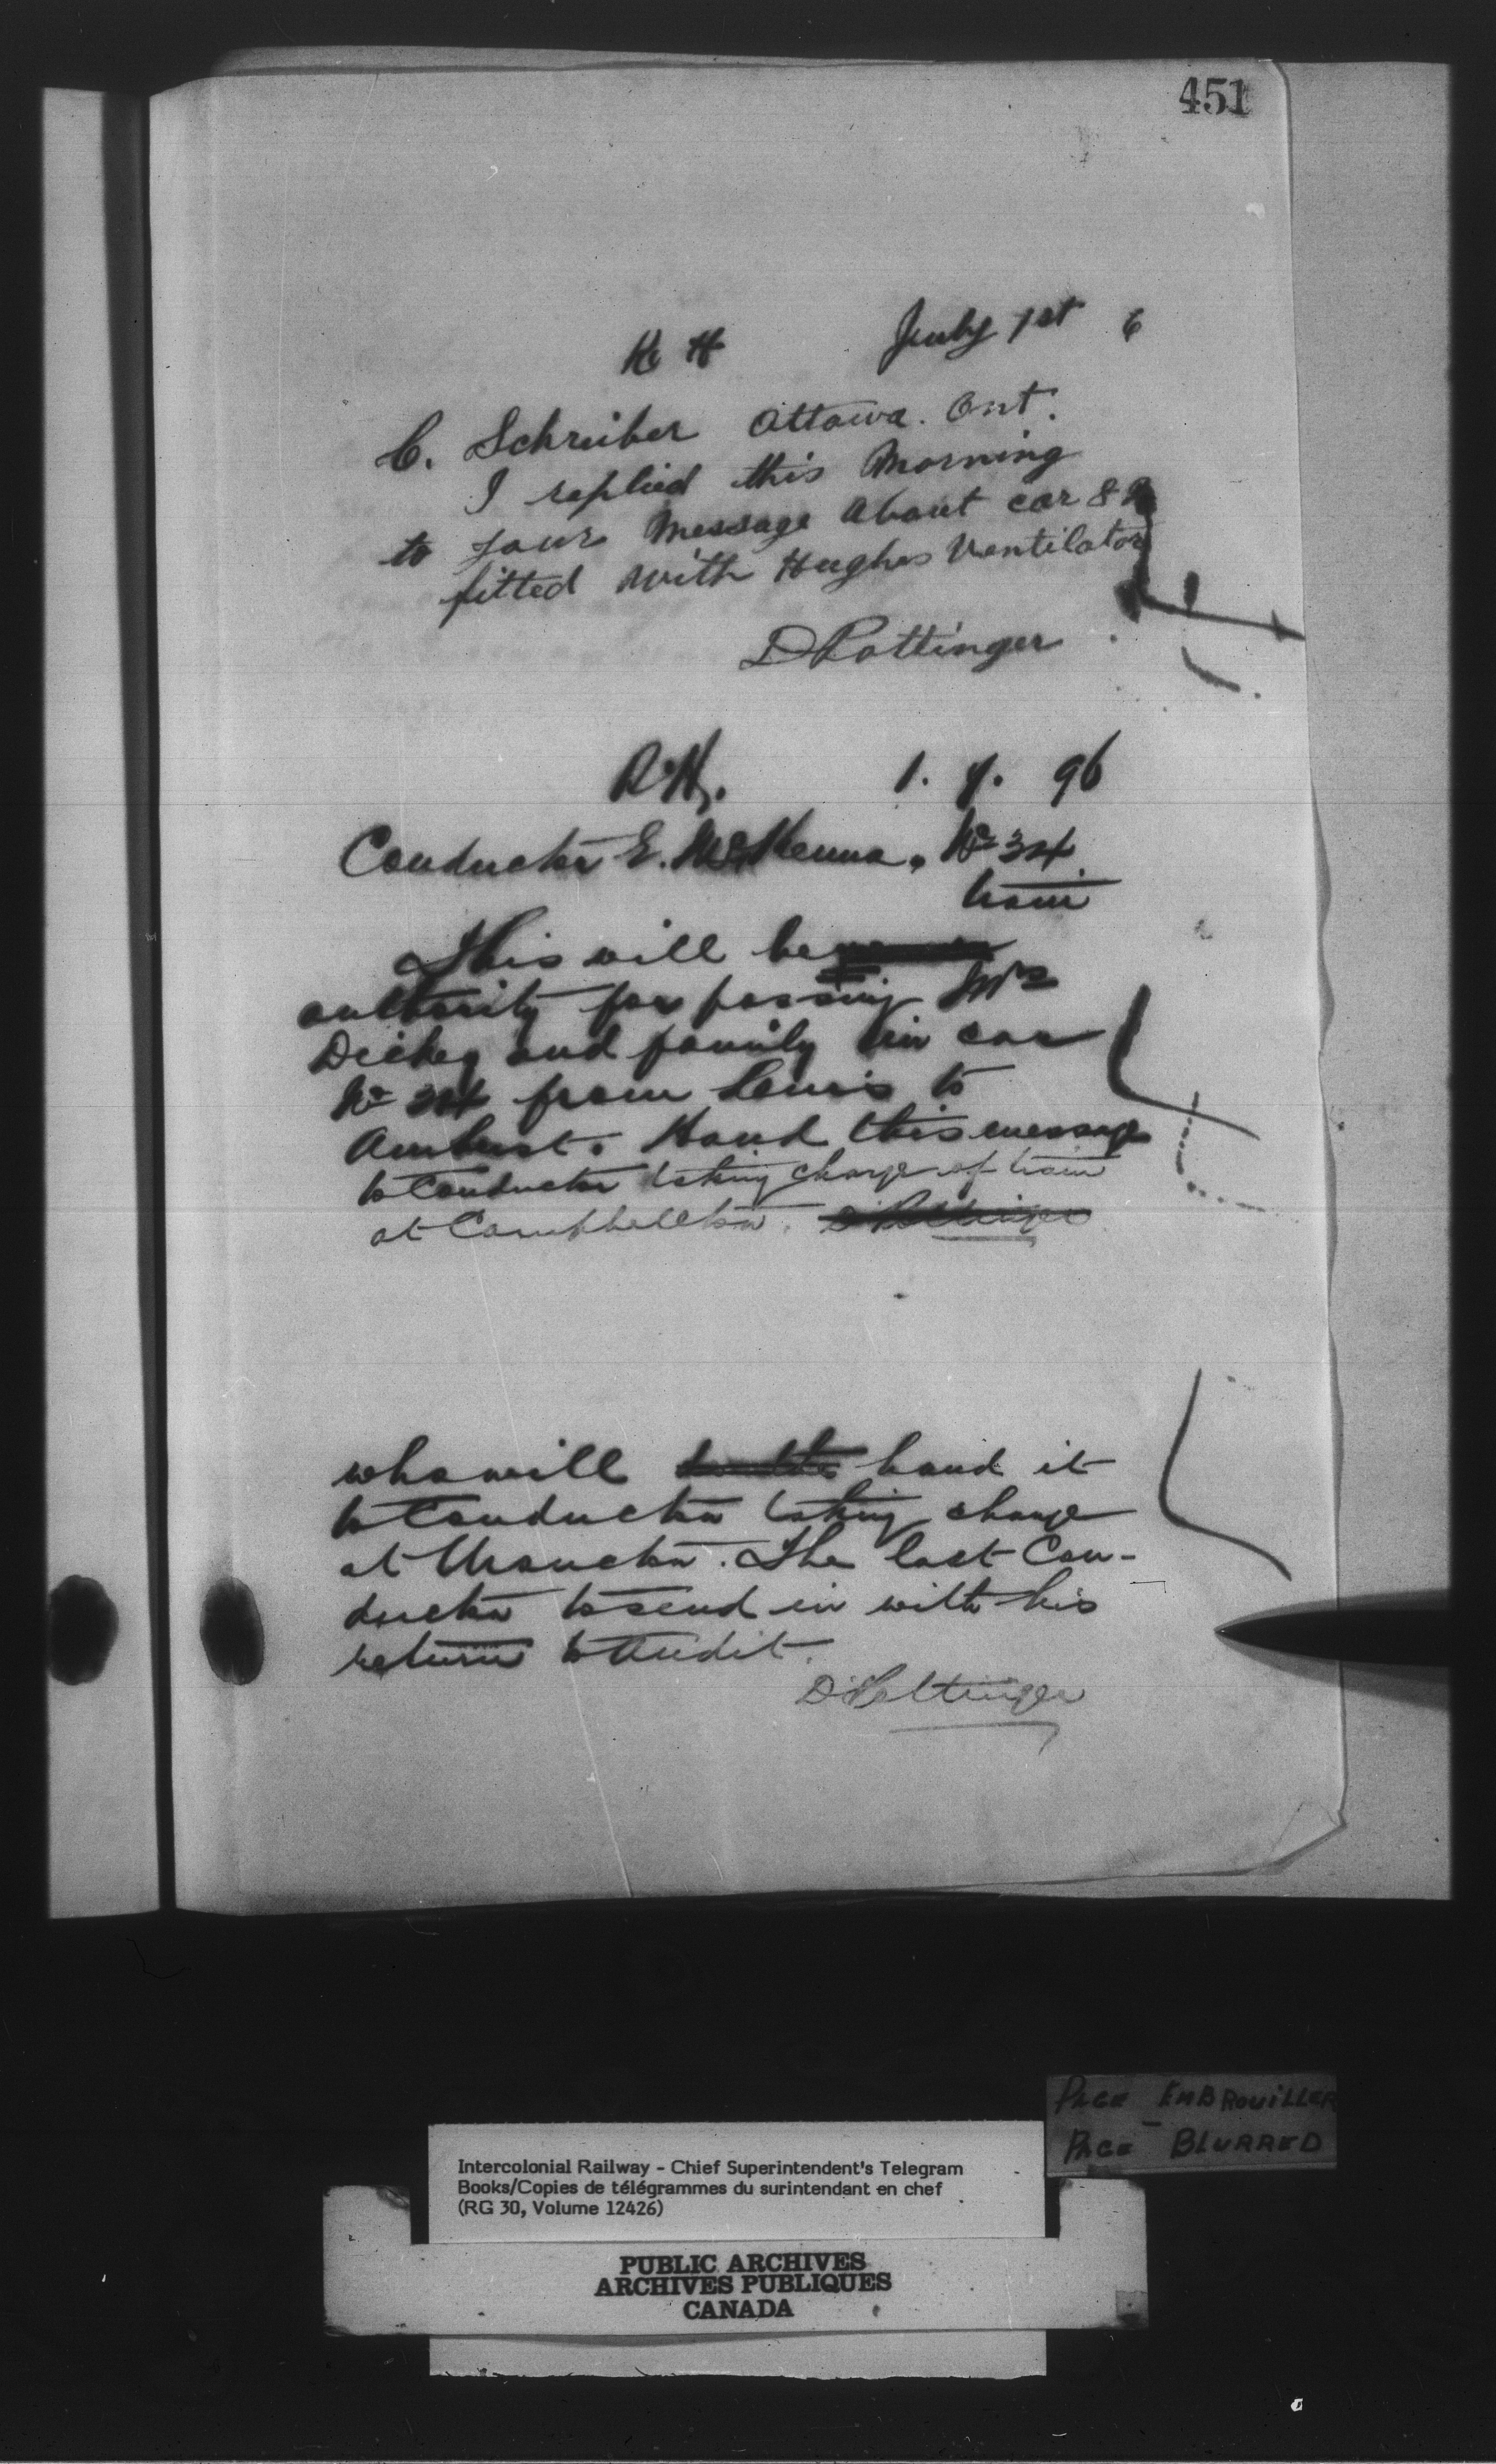 451
R H July 1st 6
C. Schreiber Ottawa. Ont.
I replied this Morning
to your Message About car 82
fitted with Hughes Ventilator
D Pottinger
R.H. 1. 7. 96
Conductor E. McKenna. No 34
train
This will be
authority for passing Mrs
Dickey and family in car
No 34 from Levis to
Amherst. Hand this message
to Conductor taking charge of train
at Campbellton. D Pottinger
who will hand it
to Conductor taking charge
at Moncton. The last Con-
ductor to send in with his
return to Audit.
D Pottinger
PAGE EMBROUILLER
PAGE BLURRED
Intercolonial Railway - Chief Superintendent's Telegram
Books/Copies de télégrammes du surintendant en chef
(RG 30, Volume 12426)
PUBLIC ARCHIVES
ARCHIVES PUBLIQUES
CANADA